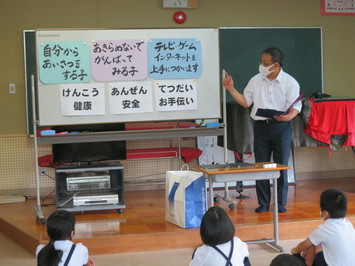 自分から
あいさつを
する子
あきらめないで
がんばって
みる子
テレビ、ゲーム
インターネットを
上手につかいます
けんこう
健康
あんぜん
安全
てつだい
お手伝い